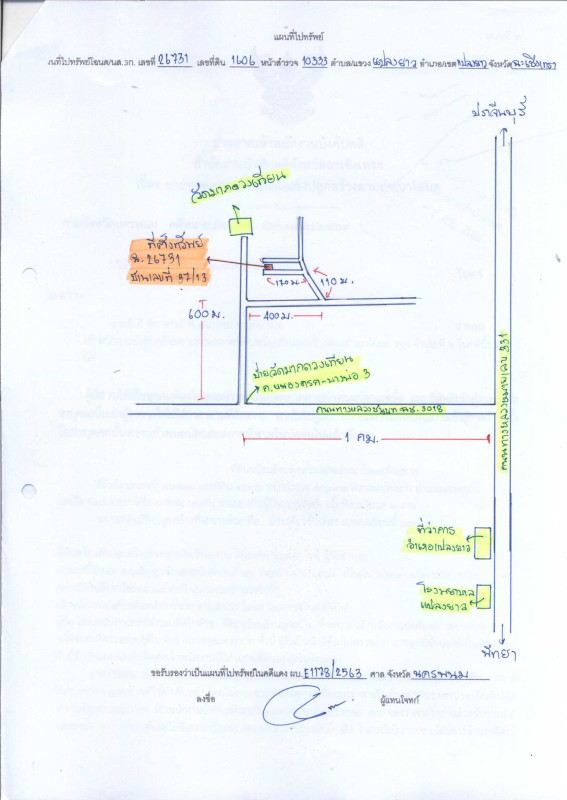 แผนที่ไปทรัพย์
นที่ไปทรัพย์โฉนด/นส.3ก. เลขที่ 26731 เลขที่ดิน 1606 หน้าสำรวจ 10333 ตำบล/แขวง แปลงยาว อำเภอ/เขต แปลงยาว จังหวัด ฉะเชิงเทรา
ปราจีนบุรี
วัดมาบดวงเทียน
ที่ตั้งทรัพย์
ฉ. 26731
บ้านเลขที่ 37/13
120 ม.
110 ม.
600 ม.
400 ม.
ป้ายวัดมาบดวงเทียน
ถ.หนองครก-บางพ่อ 3
ถนนทางหลวงชนบท ฉช. 3018
ถนนทางหลวงหมายเลข 331
1 กม.
ที่ว่าการ
อำเภอแปลงยาว
โรงพยาบาล
แปลงยาว
พัทยา
ขอรับรองว่าเป็นแผนที่ไปทรัพย์ในคดีแดง ผบ. E1178/2563 ศาล จังหวัด นครพนม
ลงชื่อ ผู้แทนโจทก์